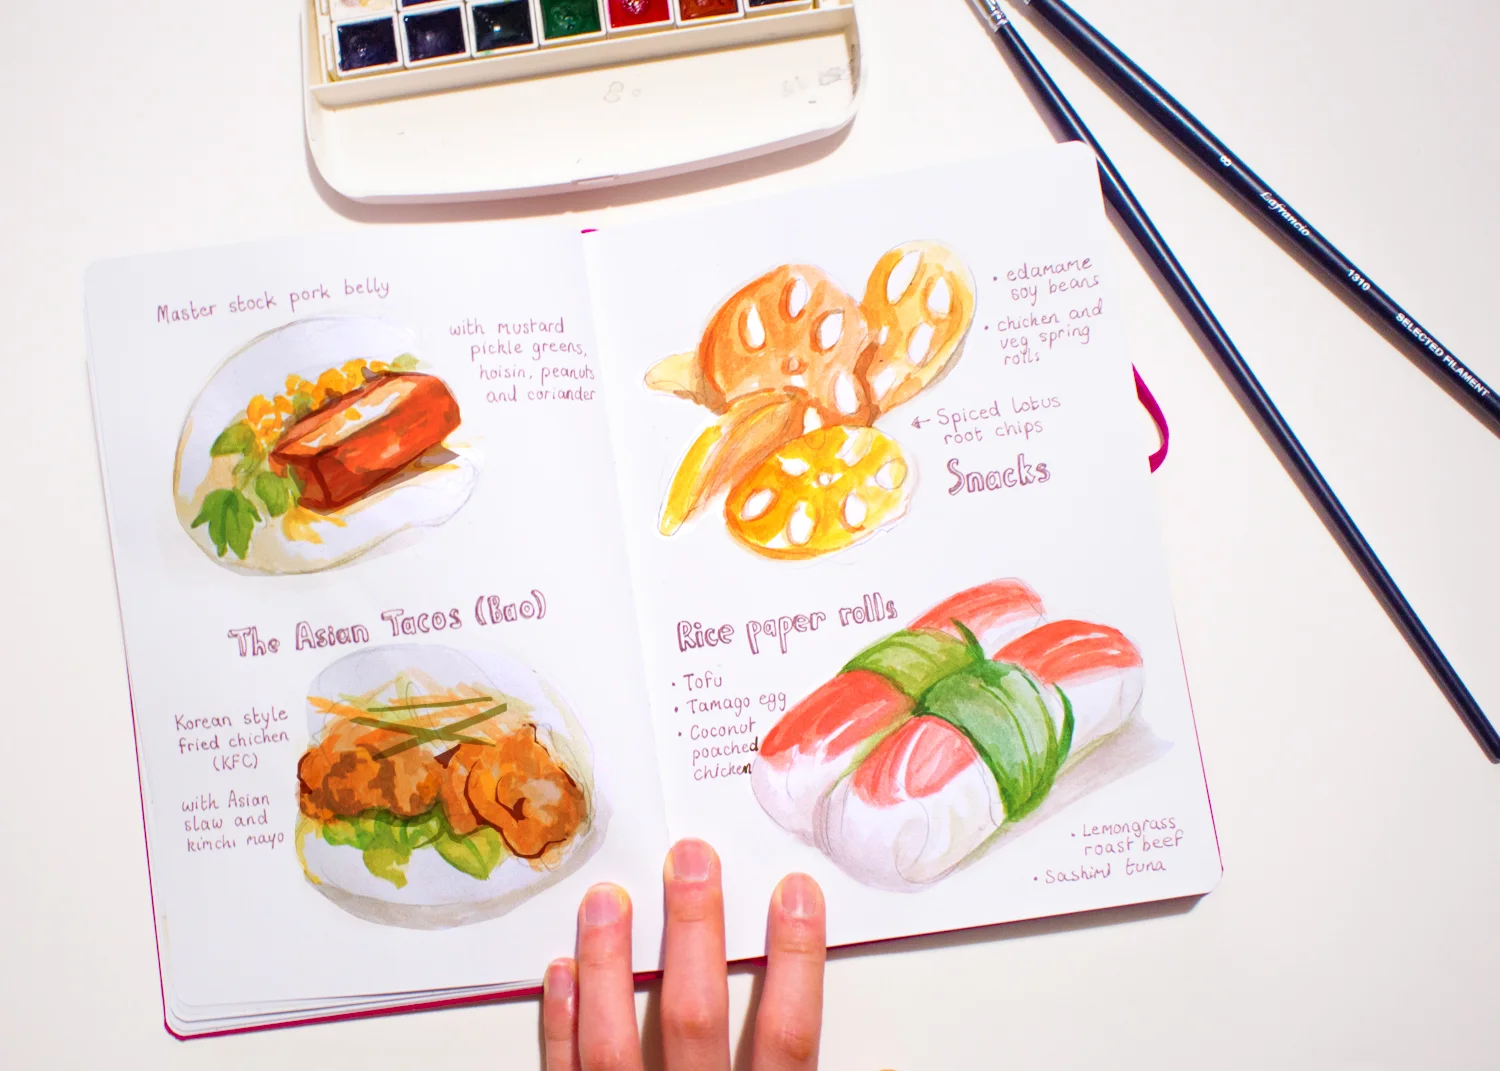 Master stock pork belly
with mustard
pickle greens,
hoisin, peanuts
and coriander
The Asian Tacos (Bao)
Korean style
fried chicken
(KFC)
with Asian
slaw and
kimchi mayo
• edamame
soy beans
• chicken and
veg spring
rolls
← Spiced lotus
root chips
Snacks
Rice paper rolls
• Tofu
• Tamago egg
• Coconut
poached
chicken
• Lemongrass
roast beef
• Sashimi tuna
8 Lafrancio 1310 SELECTED FILAMENT